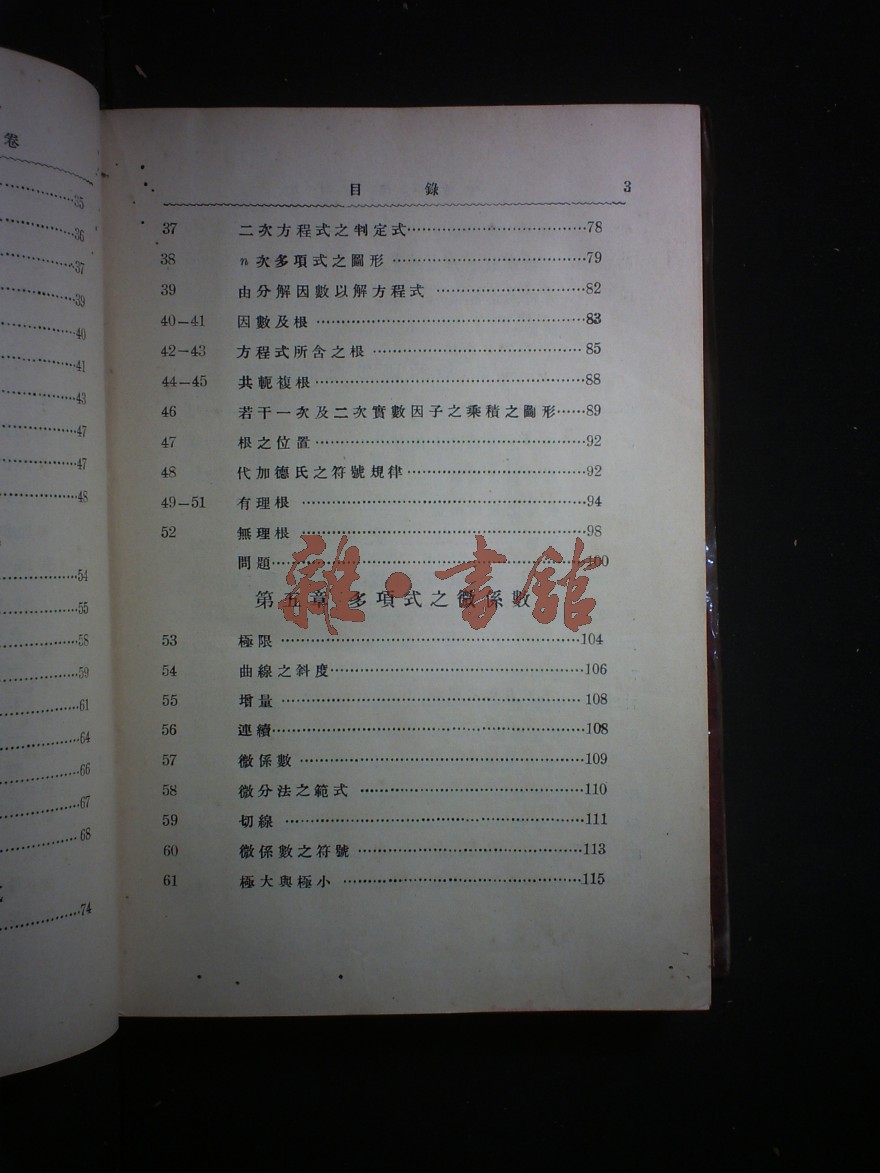 卷
35
36
37
39
40
41
43
47
47
48
54
55
58
59
61
64
66
67
68
74
目 錄 3
37 二次方程式之判定式 78
38 n次多項式之圖形 79
39 由分解因數以解方程式 82
40－41 因數及根 83
42－43 方程式所含之根 85
44－45 共軛複根 88
46 若干一次及二次實數因子之乘積之圖形 89
47 根之位置 92
48 代加德氏之符號規律 92
49－51 有理根 94
52 無理根 98
問題 100
第五章 多項式之微係數
53 極限 104
54 曲線之斜度 106
55 增量 108
56 連續 108
57 微係數 109
58 微分法之範式 110
59 切線 111
60 微係數之符號 113
61 極大與極小 115
雜·書館